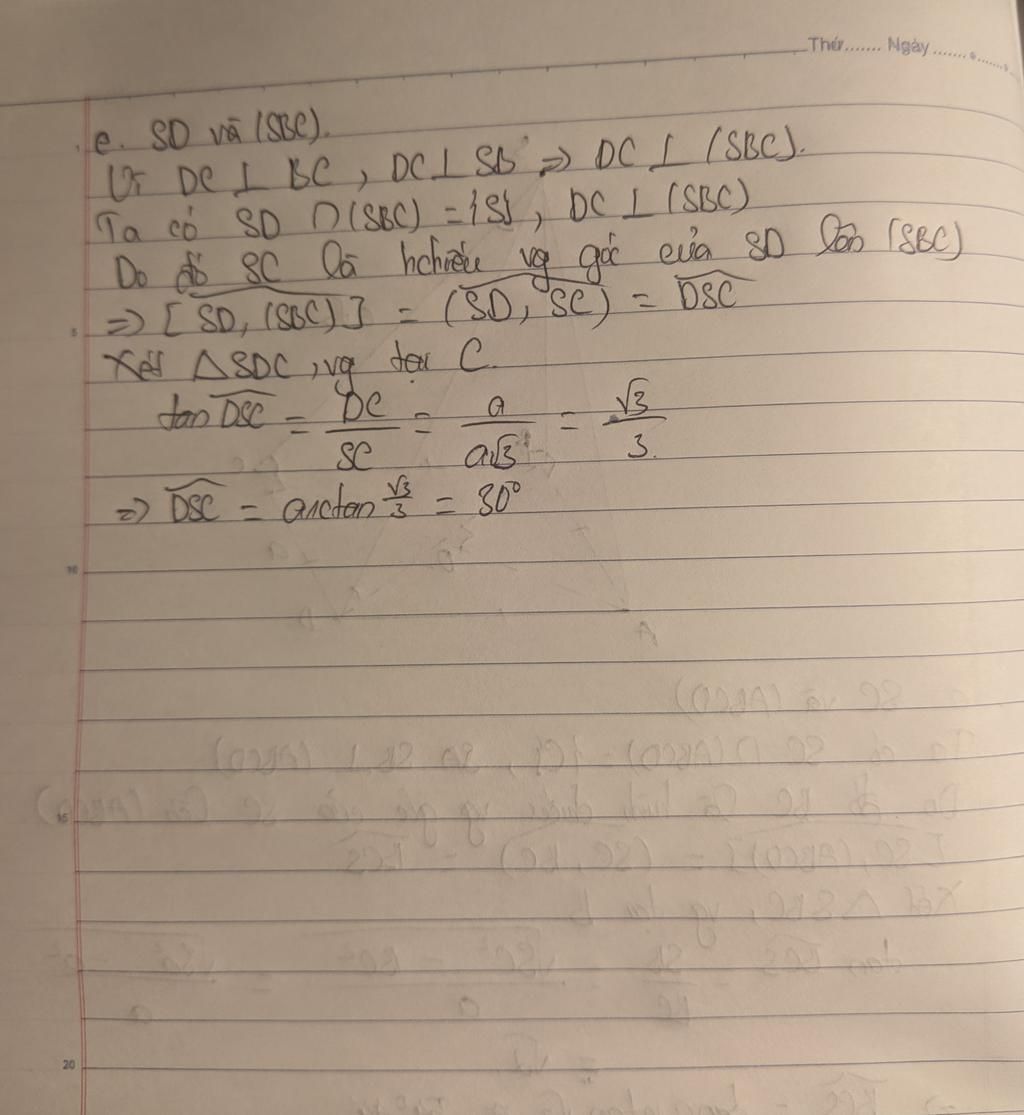 Thứ....... Ngày.............
e. SD và (SBC).
Vì DC ⊥ BC, DC ⊥ SB ⇒ DC ⊥ (SBC).
Ta có SD ∩ (SBC) = {S}, DC ⊥ (SBC)
Do đó SC là hchiếu vg góc của SD lên (SBC)
⇒ [SD, (SBC)] = (SD, SC) = DSC
Xét △SDC, vg tại C.
tan DSC = DC/SC = a/a√3 = √3/3.
⇒ DSC = arctan √3/3 = 30°
5
10
15
20